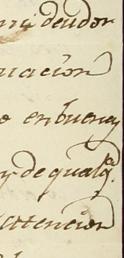 mi deudor
uacion
o en buena
y de qualq.
atencion